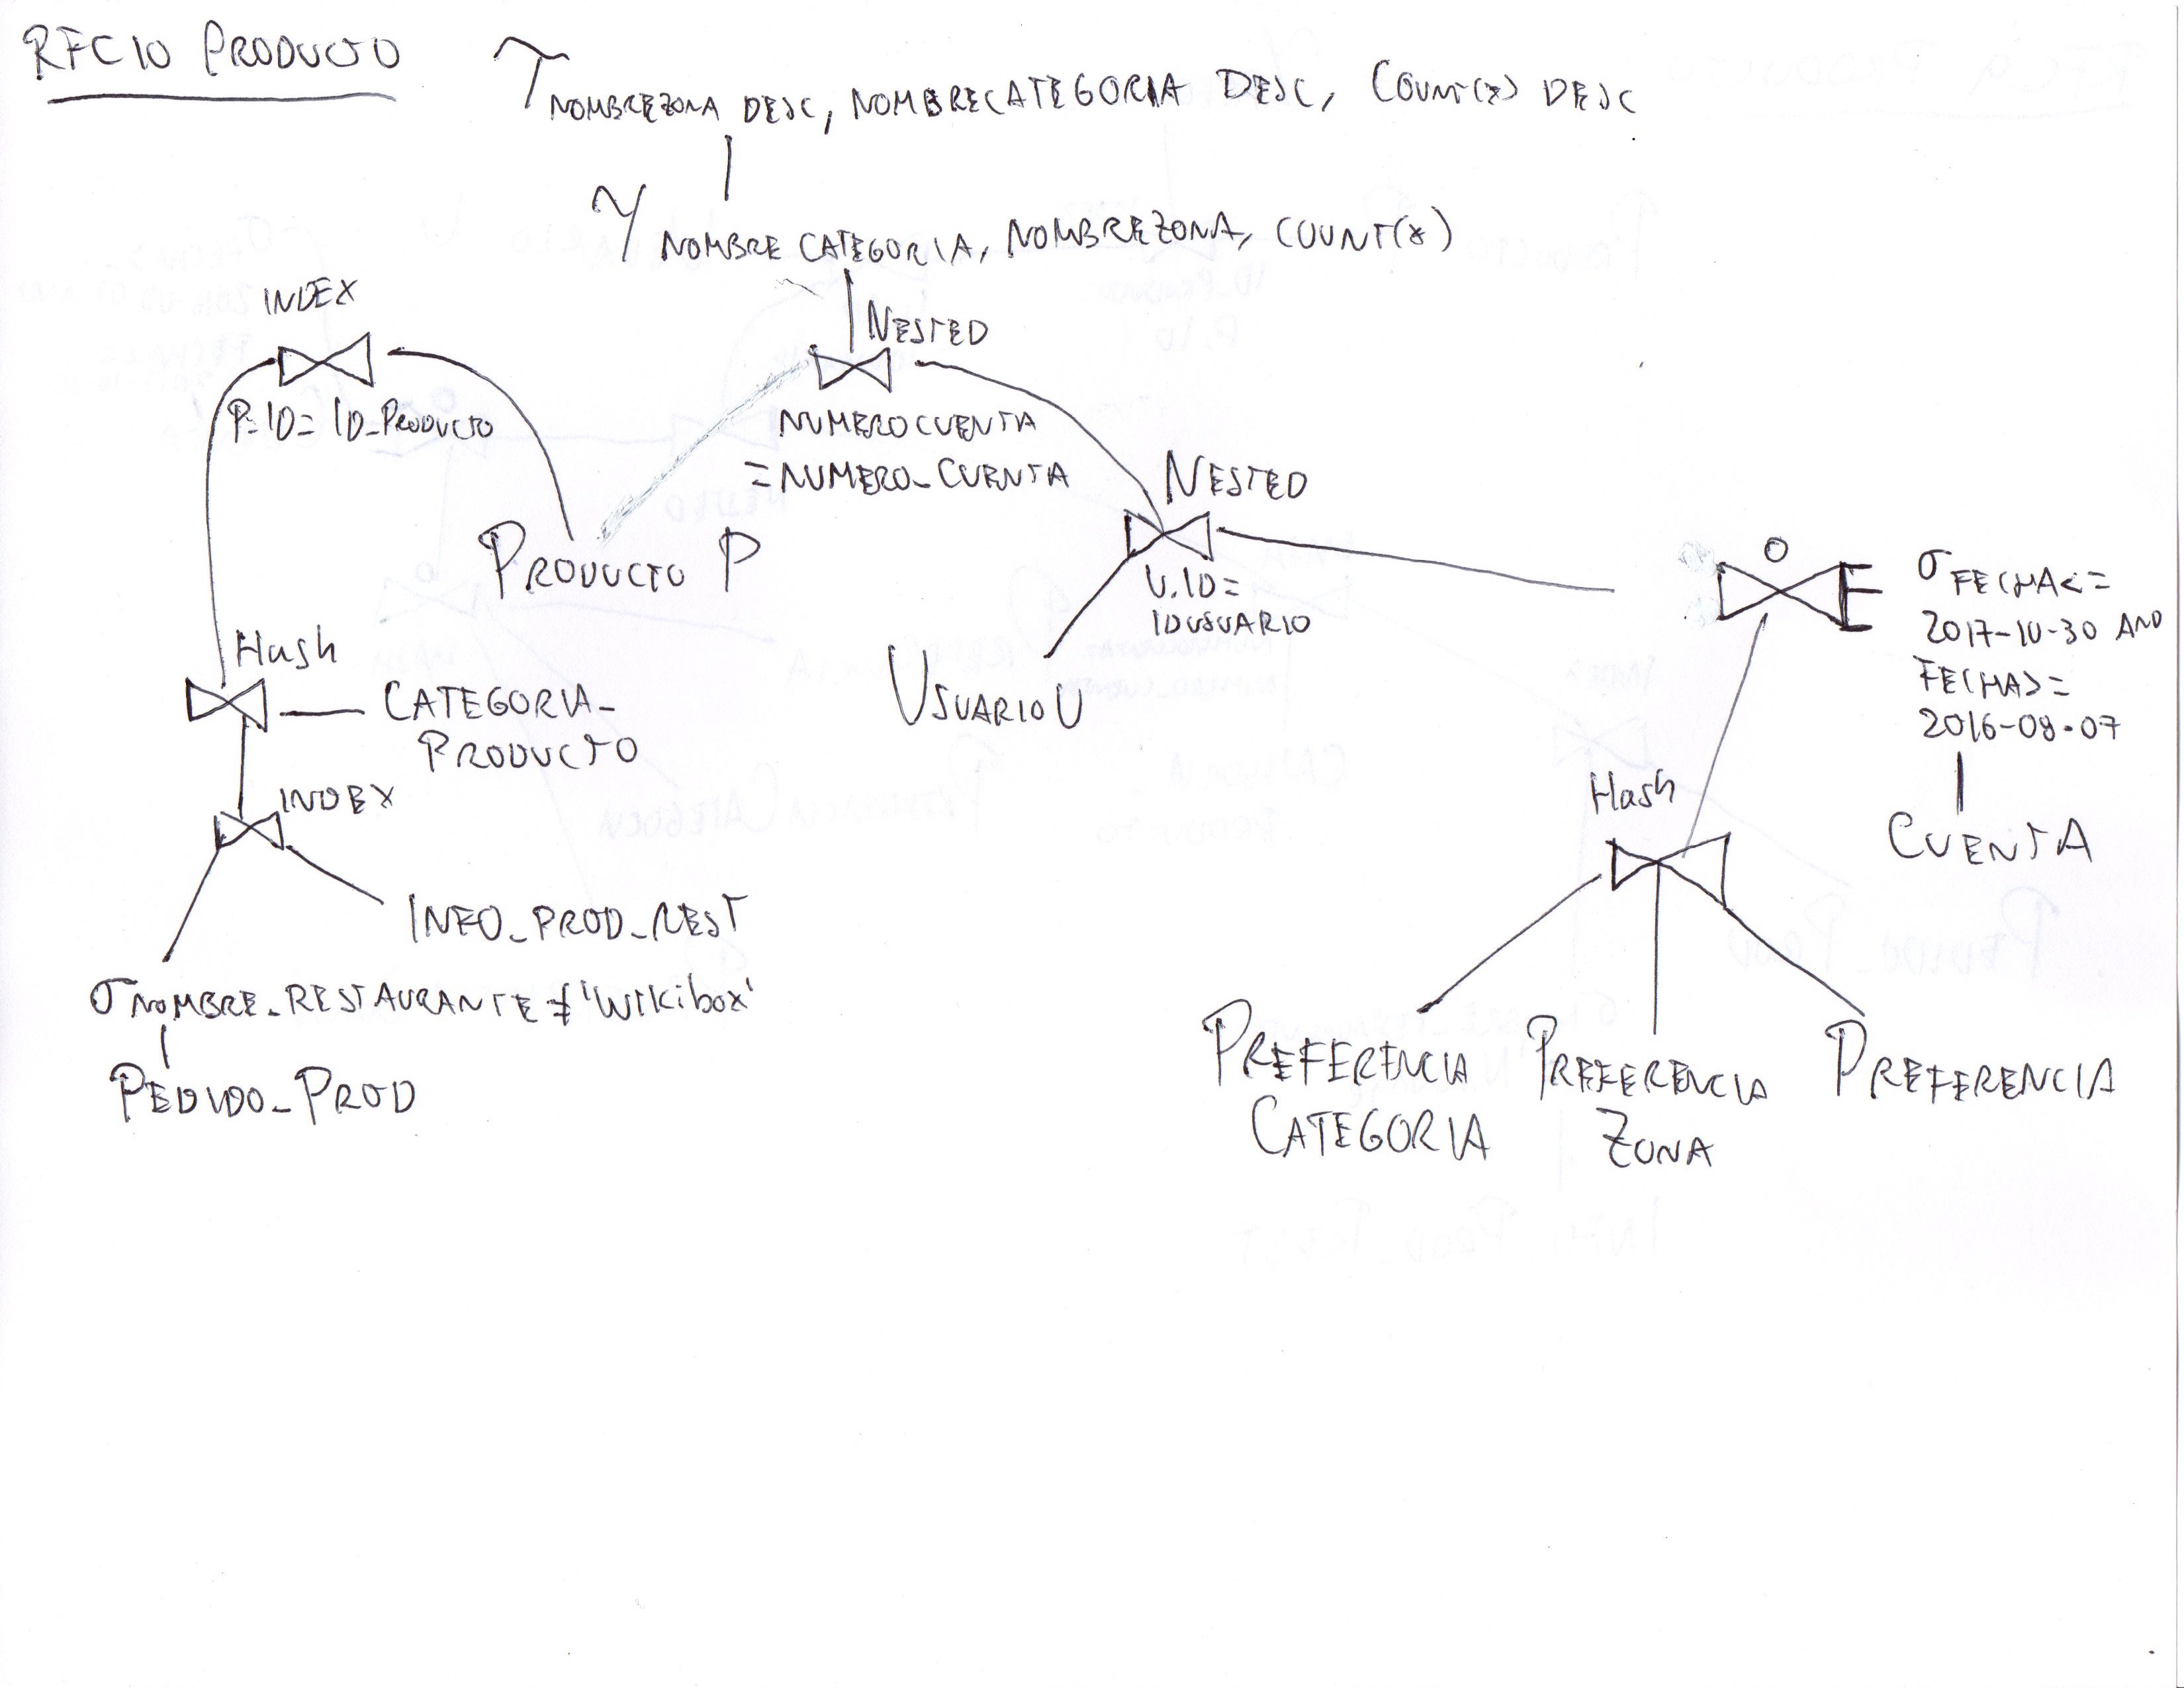 RFC10 PRODUCTO
T NOMBREZONA DESC, NOMBRECATEGORIA DESC, COUNT(*) DESC
γ NOMBRE CATEGORIA, NOMBREZONA, COUNT(*)
INDEX
P.ID= ID_PRODUCTO
NESTED
NUMEROCUENTA
=NUMERO_CUENTA
PRODUCTO P
NESTED
U.ID=
IDUSUARIO
USUARIO U
O
σ FECHA<=
2017-10-30 AND
FECHA>=
2016-08-07
CUENTA
Hash
CATEGORIA_
PRODUCTO
INDEX
INFO_PROD_REST
σ NOMBRE_RESTAURANTE ≠ 'Wikibox'
PEDIDO_PROD
Hash
PREFERENCIA
CATEGORIA
PREFERENCIA
ZONA
PREFERENCIA